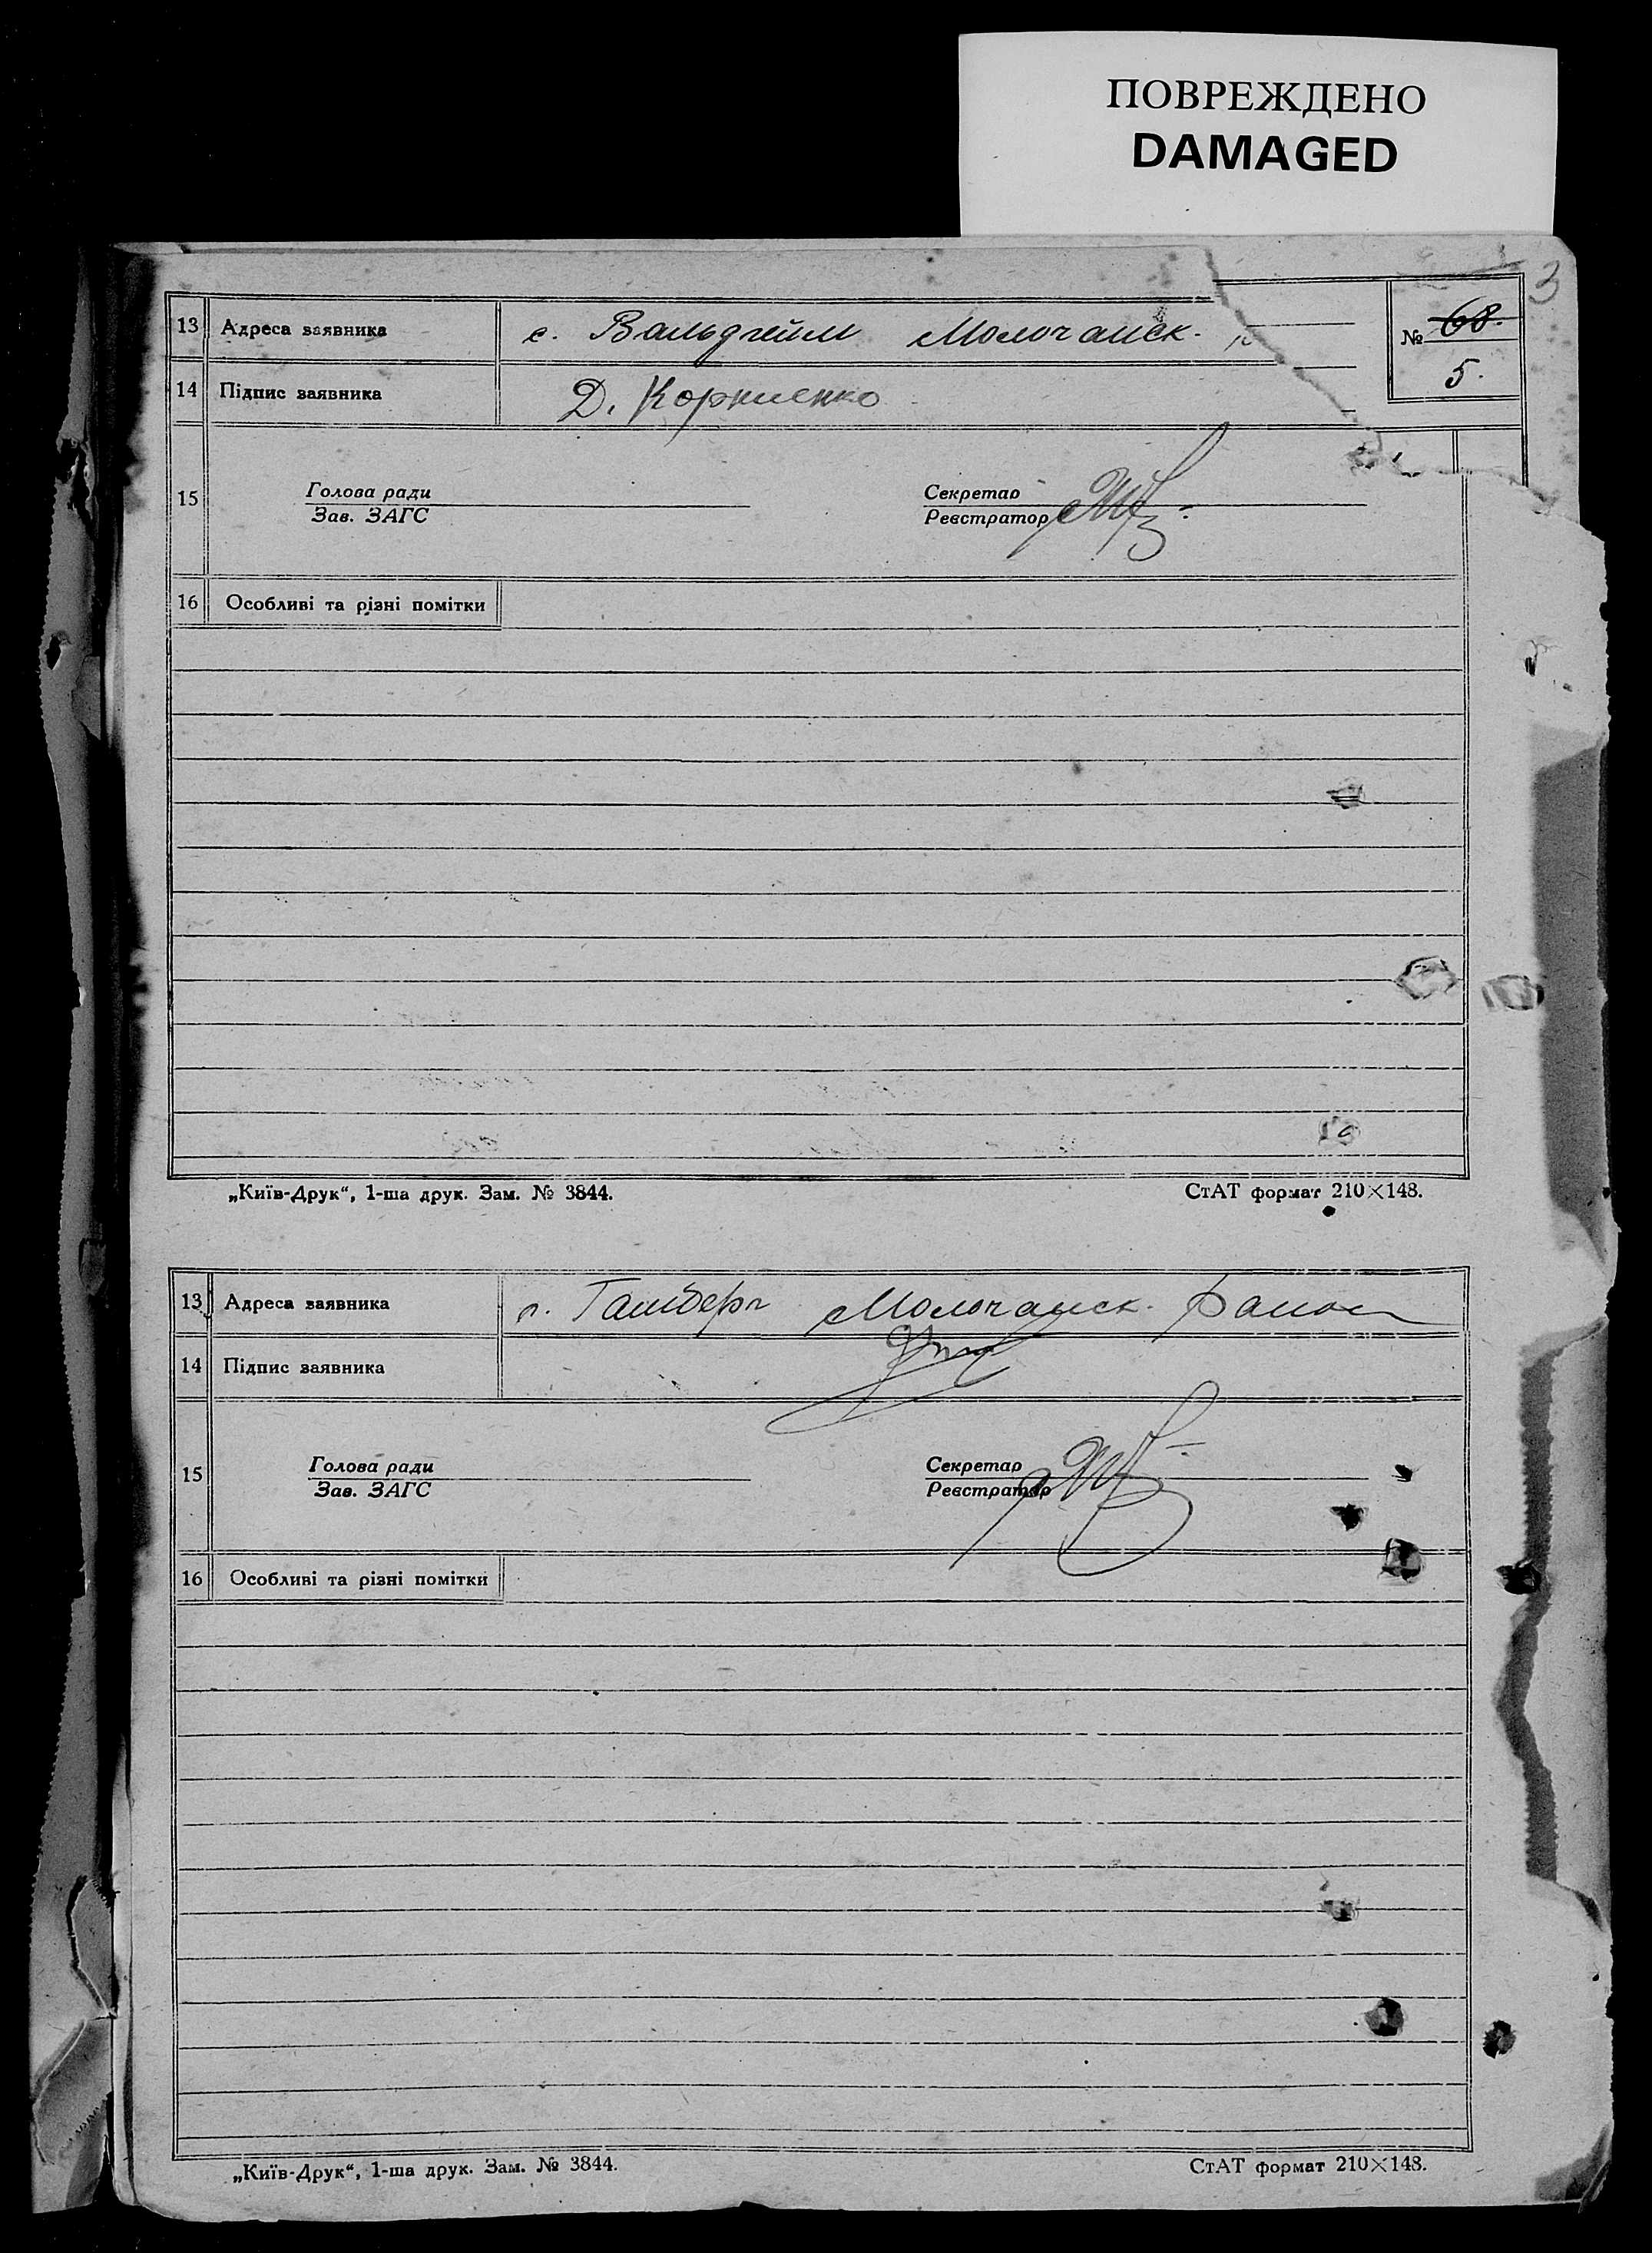 ПОВРЕЖДЕНО
DAMAGED
3
13 Адреса заявника с. Вальдгейм Молочанск.
№ 68.
5.
14 Підпис заявника Д. Корниенко
15 Голова ради Секретар
Зав. ЗАГС Реєстратор
16 Особливі та різні помітки
„Київ-Друк“, 1-ша друк. Зам. № 3844. СтАТ формат 210×148.
13 Адреса заявника с. Гамберг Молочанск. район
14 Підпис заявника
15 Голова ради Секретар
Зав. ЗАГС Реєстратор
16 Особливі та різні помітки
„Київ-Друк“, 1-ша друк. Зам. № 3844. СтАТ формат 210×148.